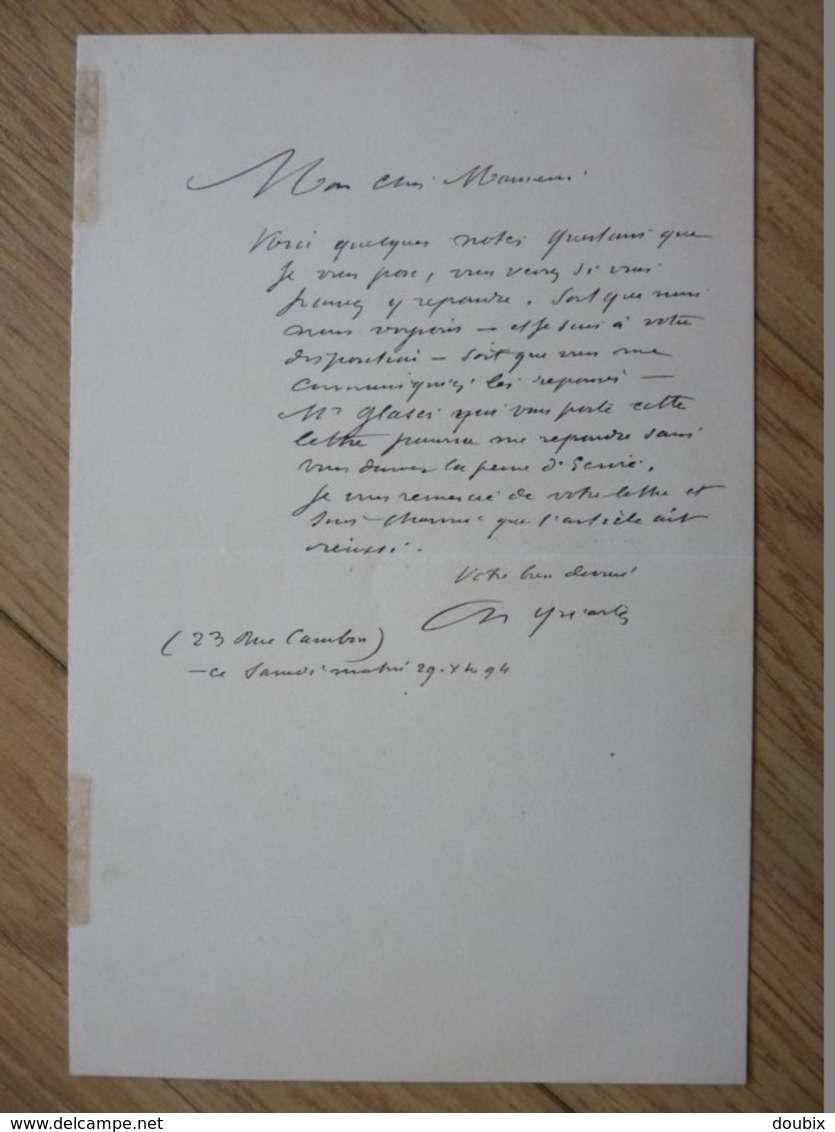 Mon cher Monsieur
Voici quelques notes questions que
je vous pose, vous verrez si vous
pouvez y repondre. Soit que nous
nous voyions — et je suis à votre
disposition — soit que vous me
communiquiez les reponses —
Mr Glaser qui vous porte cette
lettre pourra me repondre sans
vous donner la peine d'Ecrire.
Je vous remercie de votre lettre et
suis charmé que l'article ait
réussi.
Votre bien devoué
Ch Yriarte
(23 Rue Cambon)
— ce Samedi matin 29. 94
www.delcampe.net
doubix